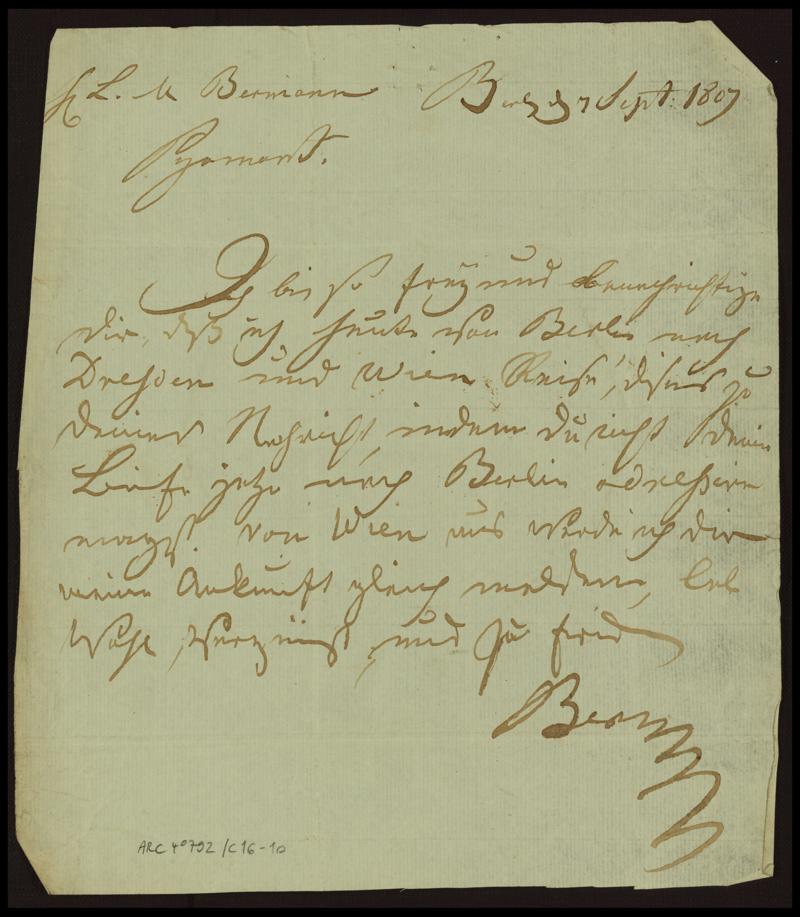 H L. M Bermann Berlin d 7 Sept: 1807
Pyrmont.
Ich bin so frey und benachrichtige
dir, daß ich heute von Berlin nach
Dresden und Wien Reise, dieses zu
deiner Nachricht, indem du nicht deine
Briefe jetzo nach Berlin adressiren
magst. Von Wien aus werde ich dir
meine Ankunft gleich melden, leb
Wohl, vergnügt, und zu fried
Berm
ARC 4°792 /C16-10